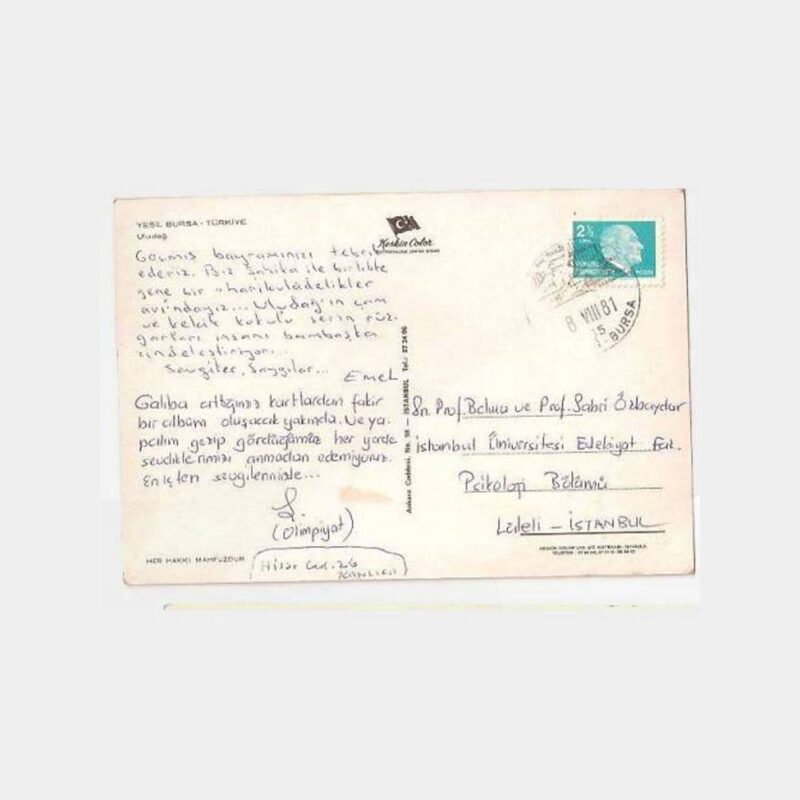 YEŞİL BURSA - TÜRKİYE
Uludağ
Keskin Color
Geçmiş bayramınızı tebrik
ederiz. Biz ile birlikte
gene bir "harikulâdelikler
avı'ndayız... Uludağ'ın çam
ve kekik kokulu serin rüz-
garları insanı bambaşka
zindeleştiriyor...
Sevgiler, Saygılar...
Emel
Galiba attığımız kartlardan fakir
bir albüm oluşacak yakında. Ne ya-
palım gezip gördüğümüz her yerde
sevdiklerimizi anmadan edemiyoruz.
En içten sevgilerimizle...
(Olimpiyat)
HER HAKKI MAHFUZDUR
Hisar Cad.
KANLICA
Ankara Caddesi, No. 98 - İSTANBUL Tel.: 27 24 06
2½
POSTA
8 VIII 81
15
BURSA
Sn. Prof. Beğlan ve Prof. Sabri Özbaydar
İstanbul Üniversitesi Edebiyat Fak.
Psikoloji Bölümü
Lâleli - İSTANBUL